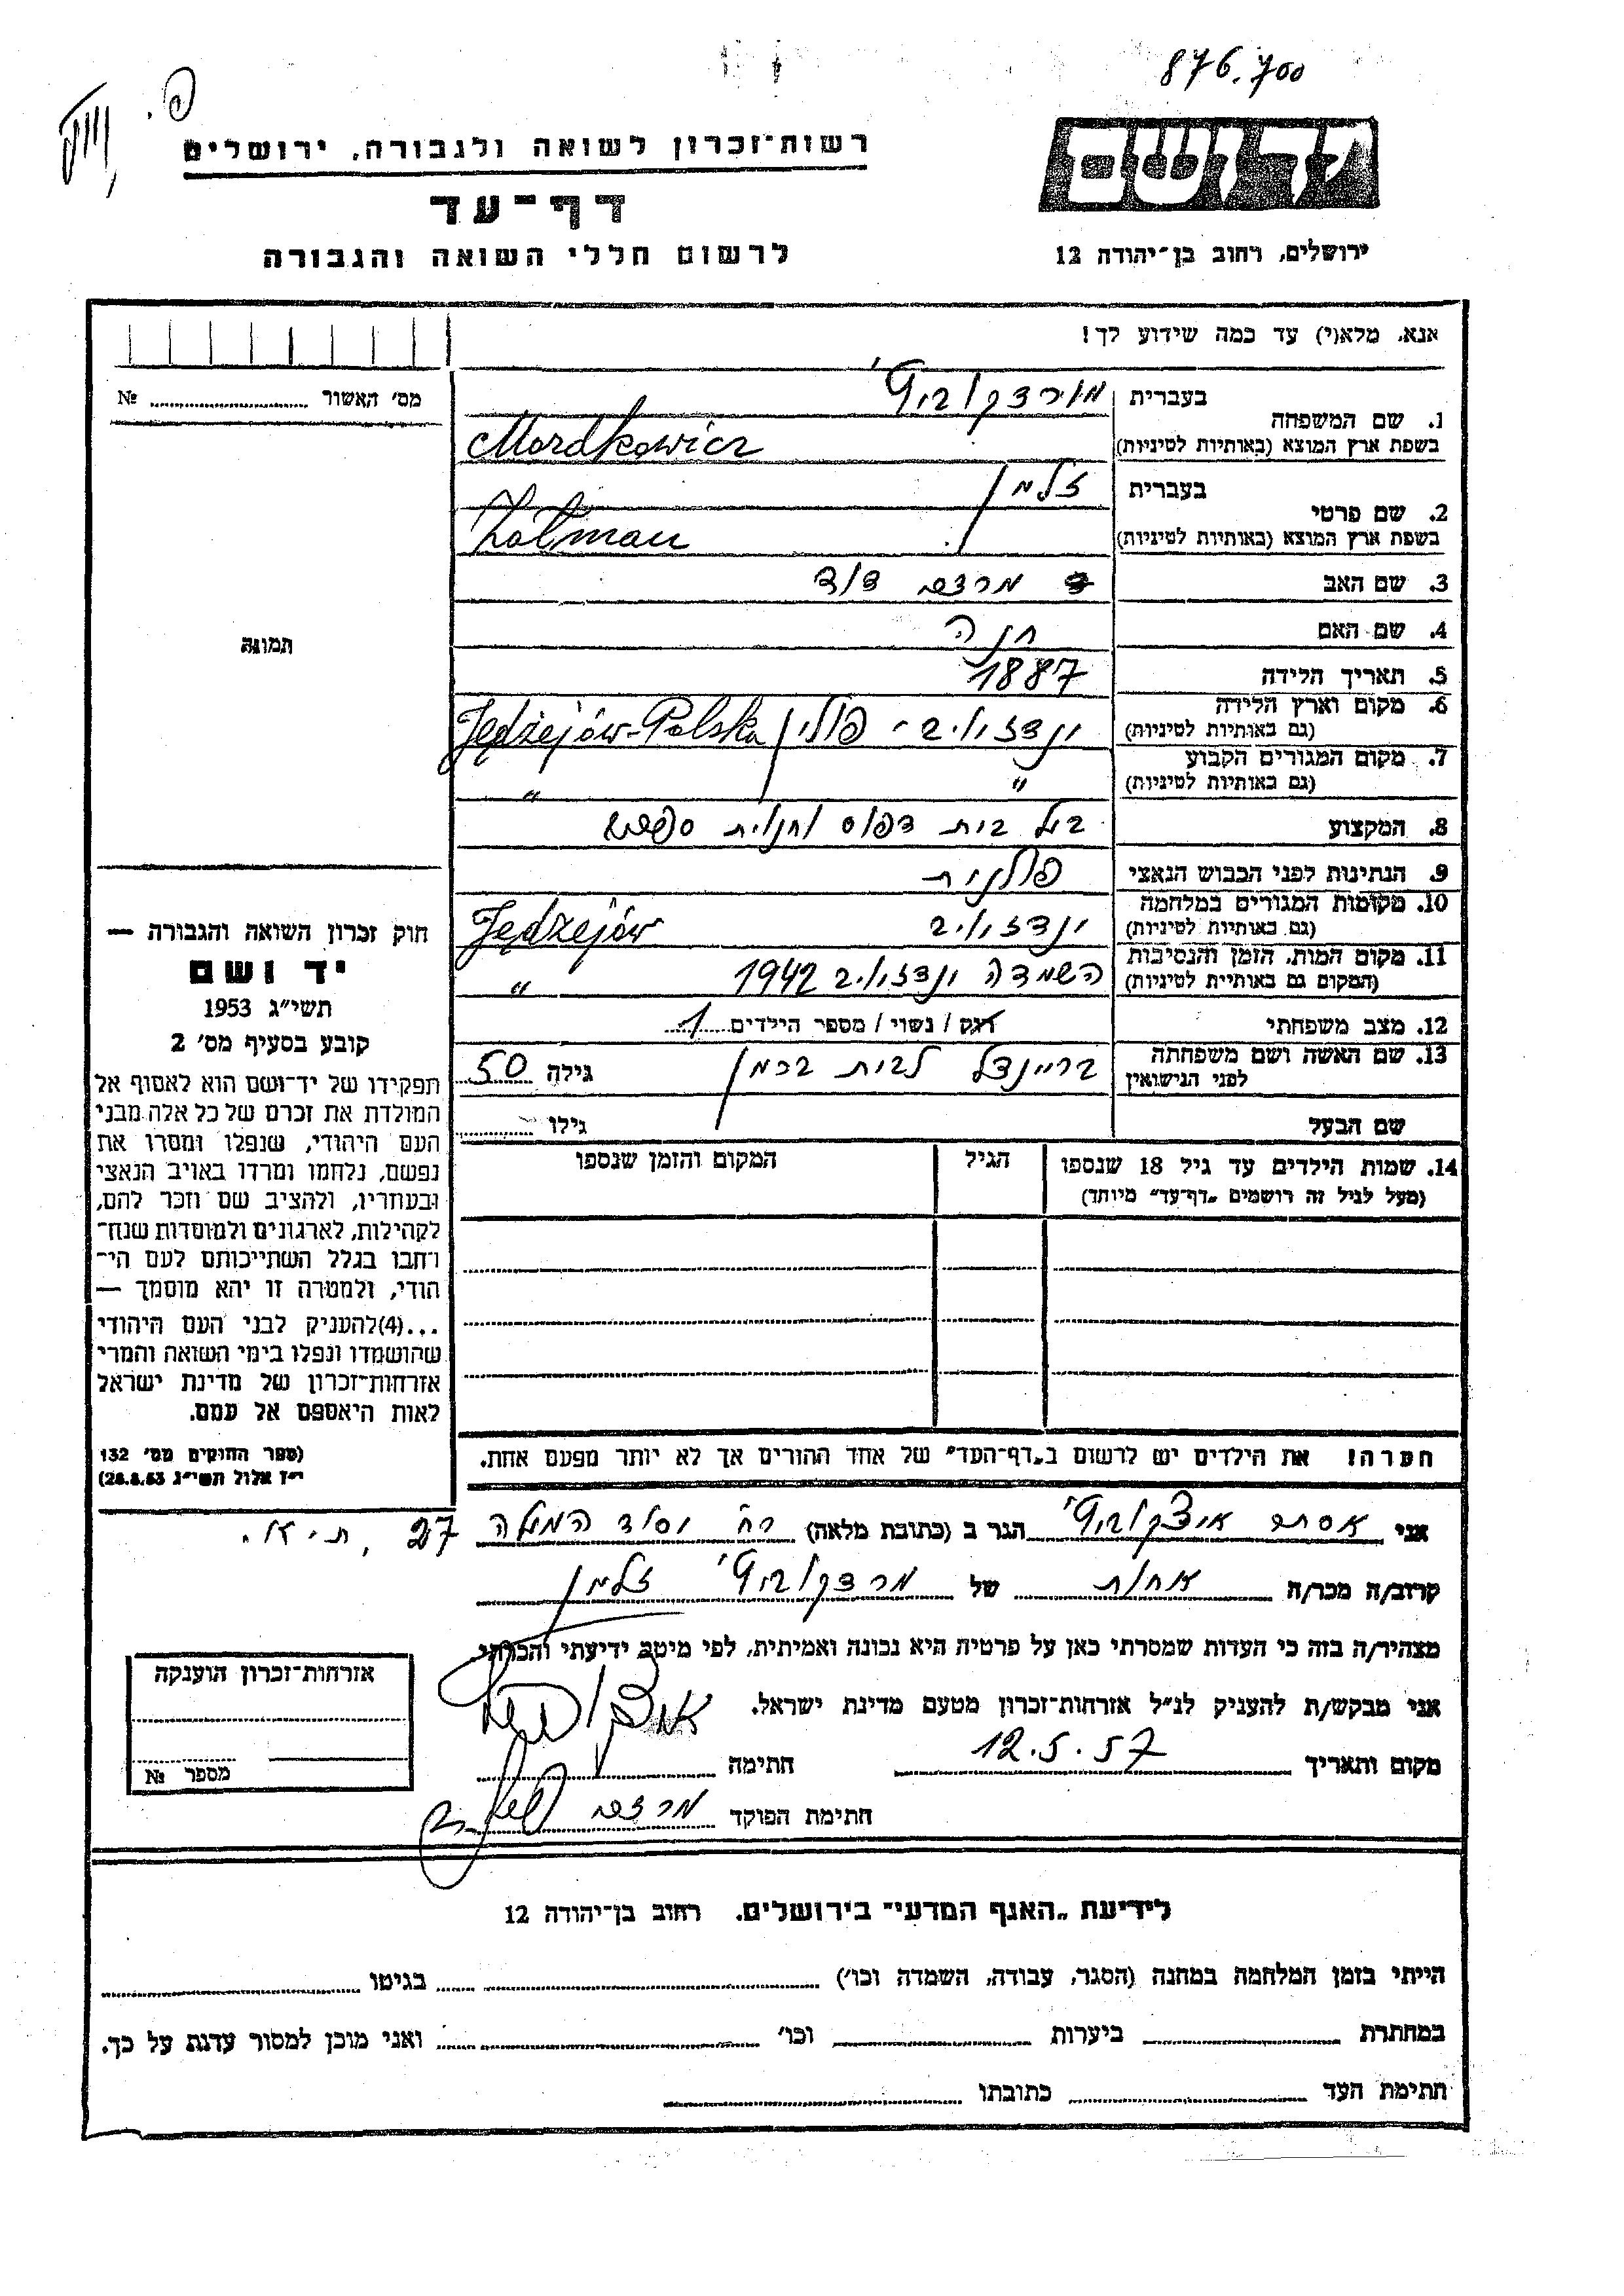 876.700
רשות־זכרון לשואה ולגבורה, ירושלים
יד ושם
דף־עד
לרשום חללי השואה והגבורה
ירושלים, רחוב בן־יהודה 12
אנא, מלא(י) עד כמה שידוע לך!
מס׳ האשור № 
1. שם המשפחה בעברית מורדקוביץ'
בשפת ארץ המוצא (באותיות לטיניות) Mordkowicz
2. שם פרטי בעברית זלמן
בשפת ארץ המוצא (באותיות לטיניות) Zalman
3. שם האב מרדכי דוד
4. שם האם חנה
5. תאריך הלידה 1887
6. מקום וארץ הלידה (גם באותיות לטיניות) ינדזוויב - פולין Jędzejów-Polska
7. מקום המגורים הקבוע (גם באותיות לטיניות) " "
8. המקצוע בעל בית דפוס וחנות ספרים
9. הנתינות לפני הכבוש הנאצי פולנית
10. מקומות המגורים במלחמה (גם באותיות לטיניות) ינדזוויב Jędzejów
11. מקום המות, הזמן והנסיבות (המקום גם באותיות לטיניות) השמדה ינדזוויב 1942 "
12. מצב משפחתי רוק / נשוי / מספר הילדים 1
13. שם האשה ושם משפחתה לפני הנישואין בריינדל לבית ברמן גילה 50
שם הבעל גילו
14. שמות הילדים עד גיל 18 שנספו הגיל המקום והזמן שנספו
(מעל לגיל זה רושמים „דף־עד״ מיוחד)
הערה! את הילדים יש לרשום ב„דף־העד״ של אחד ההורים אך לא יותר מפעם אחת.
תמונה
חוק זכרון השואה והגבורה —
יד ושם
תשי״ג 1953
קובע בסעיף מס׳ 2
תפקידו של יד־ושם הוא לאסוף אל
המולדת את זכרם של כל אלה מבני
העם היהודי, שנפלו ומסרו את
נפשם, נלחמו ומרדו באויב הנאצי
ובעוזריו, ולהציב שם וזכר להם,
לקהילות, לארגונים ולמוסדות שנח־
רבו בגלל השתייכותם לעם הי־
הודי, ולמטרה זו יהא מוסמך —
...(4) להעניק לבני העם היהודי
שהושמדו ונפלו בימי השואה והמרי
אזרחות־זכרון של מדינת ישראל
לאות היאספם אל עמם.
(ספר החוקים מס׳ 132
י״ז אלול תשי״ג 28.8.53)
אני אסתר איצקוביץ' הגר ב (כתובת מלאה) רח' יסוד המעלה 27, ת"א.
קרוב/ה מכר/ה אחות של מרדקוביץ' זלמן
מצהיר/ה בזה כי העדות שמסרתי כאן על פרטיה היא נכונה ואמיתית, לפי מיטב ידיעתי והכרתי.
אני מבקש/ת להעניק לנ״ל אזרחות־זכרון מטעם מדינת ישראל.
מקום ותאריך 12.5.57 חתימה
חתימת הפוקד מרדכי
אזרחות־זכרון הוענקה
מספר №
לידיעת „האגף המדעי״ בירושלים, רחוב בן־יהודה 12
הייתי בזמן המלחמה במחנה (הסגר, עבודה, השמדה וכו׳) בגיטו
במחתרת ביערות וכו׳ ואני מוכן למסור עדות על כך.
חתימת העד כתובתו